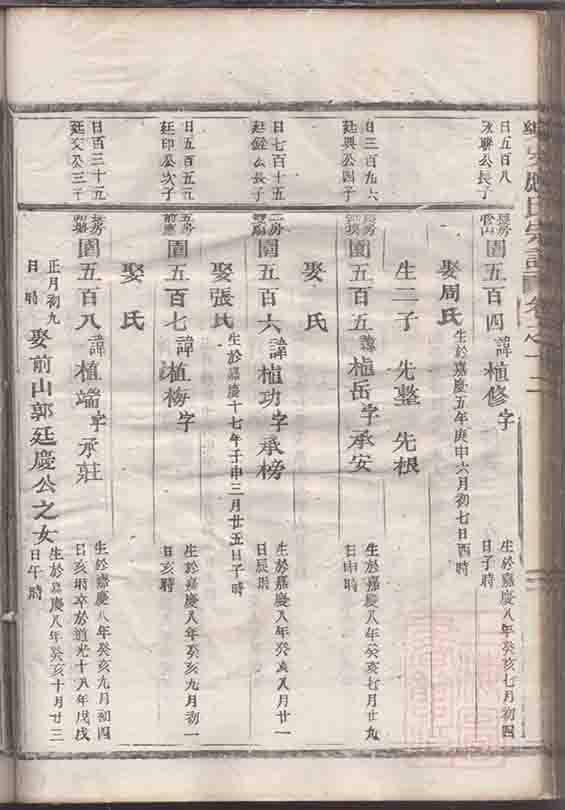 氏宗譜 卷之十二
日五百八
永聯公長子
長房
園五百四 諱植修 字
生於嘉慶八年癸亥七月初四
日子時
娶周氏
生於嘉慶五年庚申六月初七日酉時
生二子 先整 先根
日三百九六
廷興公四子
長房
園五百五 諱植岳 字承安
生於嘉慶八年癸亥七月廿九
日申時
娶 氏
日七百十五
廷餘公長子
二房
園五百六 諱植功 字承榜
生於嘉慶八年癸亥八月廿一
日辰時
娶張氏
生於嘉慶十七年壬申三月廿五日子時
日五百五五
廷印公次子
五房
園五百七 諱植梅 字
生於嘉慶八年癸亥九月初一
日亥時
娶 氏
日百三十五
廷文公三子
長房
園五百八 諱植端 字承莊
生於嘉慶八年癸亥九月初四
日亥時卒於道光十八年戊戌
正月初九
日 時
娶前山郭廷慶公之女
生於嘉慶八年癸亥十月廿三
日午時